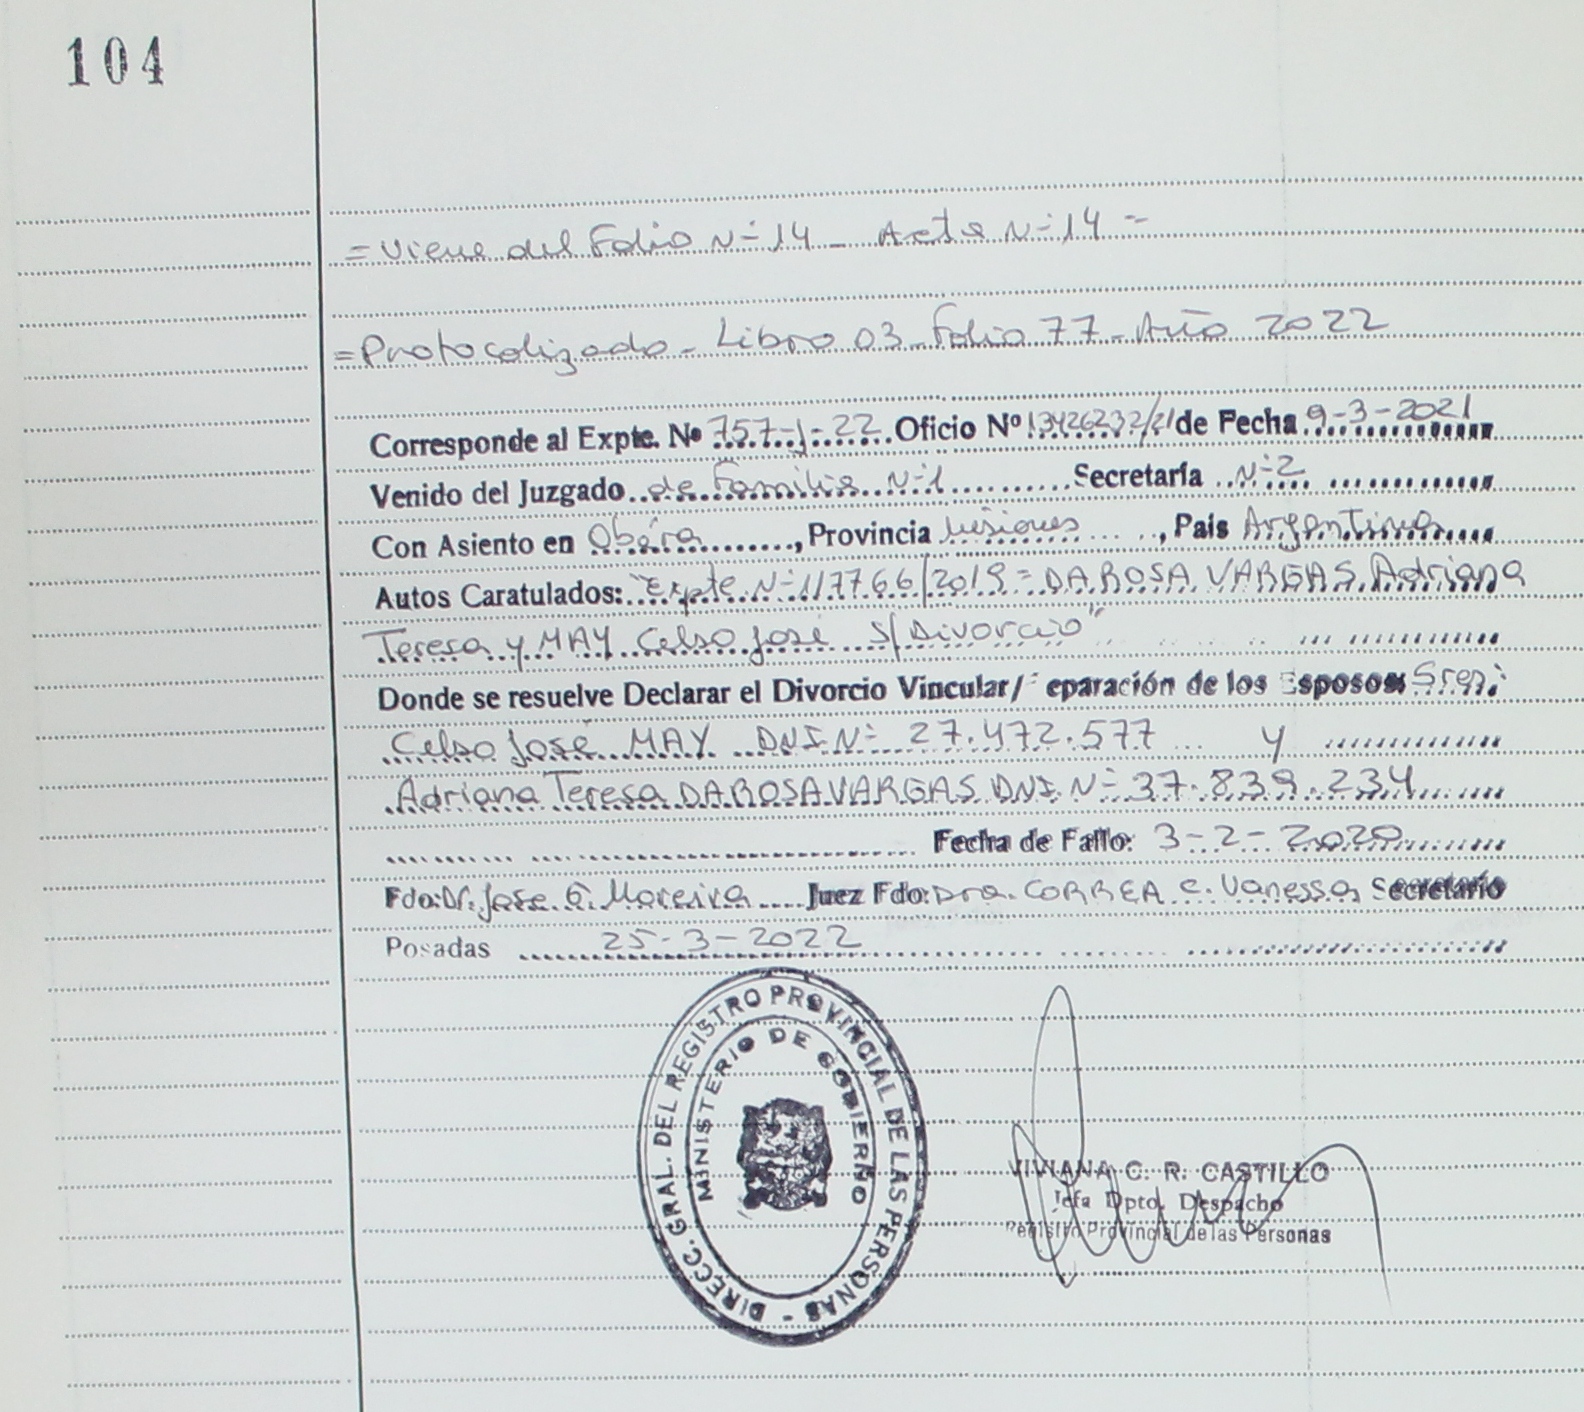 104
= Viene del Folio N= 14 - Acta N= 14 =
= Protocolizado - Libro 03 - Folio 77 - Año 2022
Corresponde al Expte. Nº 757-J-22 Oficio Nº 13426232/21 de Fecha 9-3-2021
Venido del Juzgado de Familia N=1 Secretaría N=2
Con Asiento en Oberá, Provincia Misiones, País Argentina
Autos Caratulados: "Expte N= 117766/2019 = DA ROSA VARGAS Adriana
Teresa y MAY Celso José S/Divorcio"
Donde se resuelve Declarar el Divorcio Vincular/ eparación de los Esposos:
Celso José MAY DNI N= 27.472.577 y
Adriana Teresa DA ROSA VARGAS DNI N= 37.839.234
Fecha de Fallo: 3-2-2020
Fdo: Dr. Jose G. Moreira Juez Fdo: Dra. CORREA C. Vanessa Secretario
Posadas 25-3-2022
DIRECC. GRAL. DEL REGISTRO PROVINCIAL DE LAS PERSONAS -
MINISTERIO DE GOBIERNO
VIVIANA C. R. CASTILLO
Jefa Dpto. Despacho
Registro Provincial de las Personas